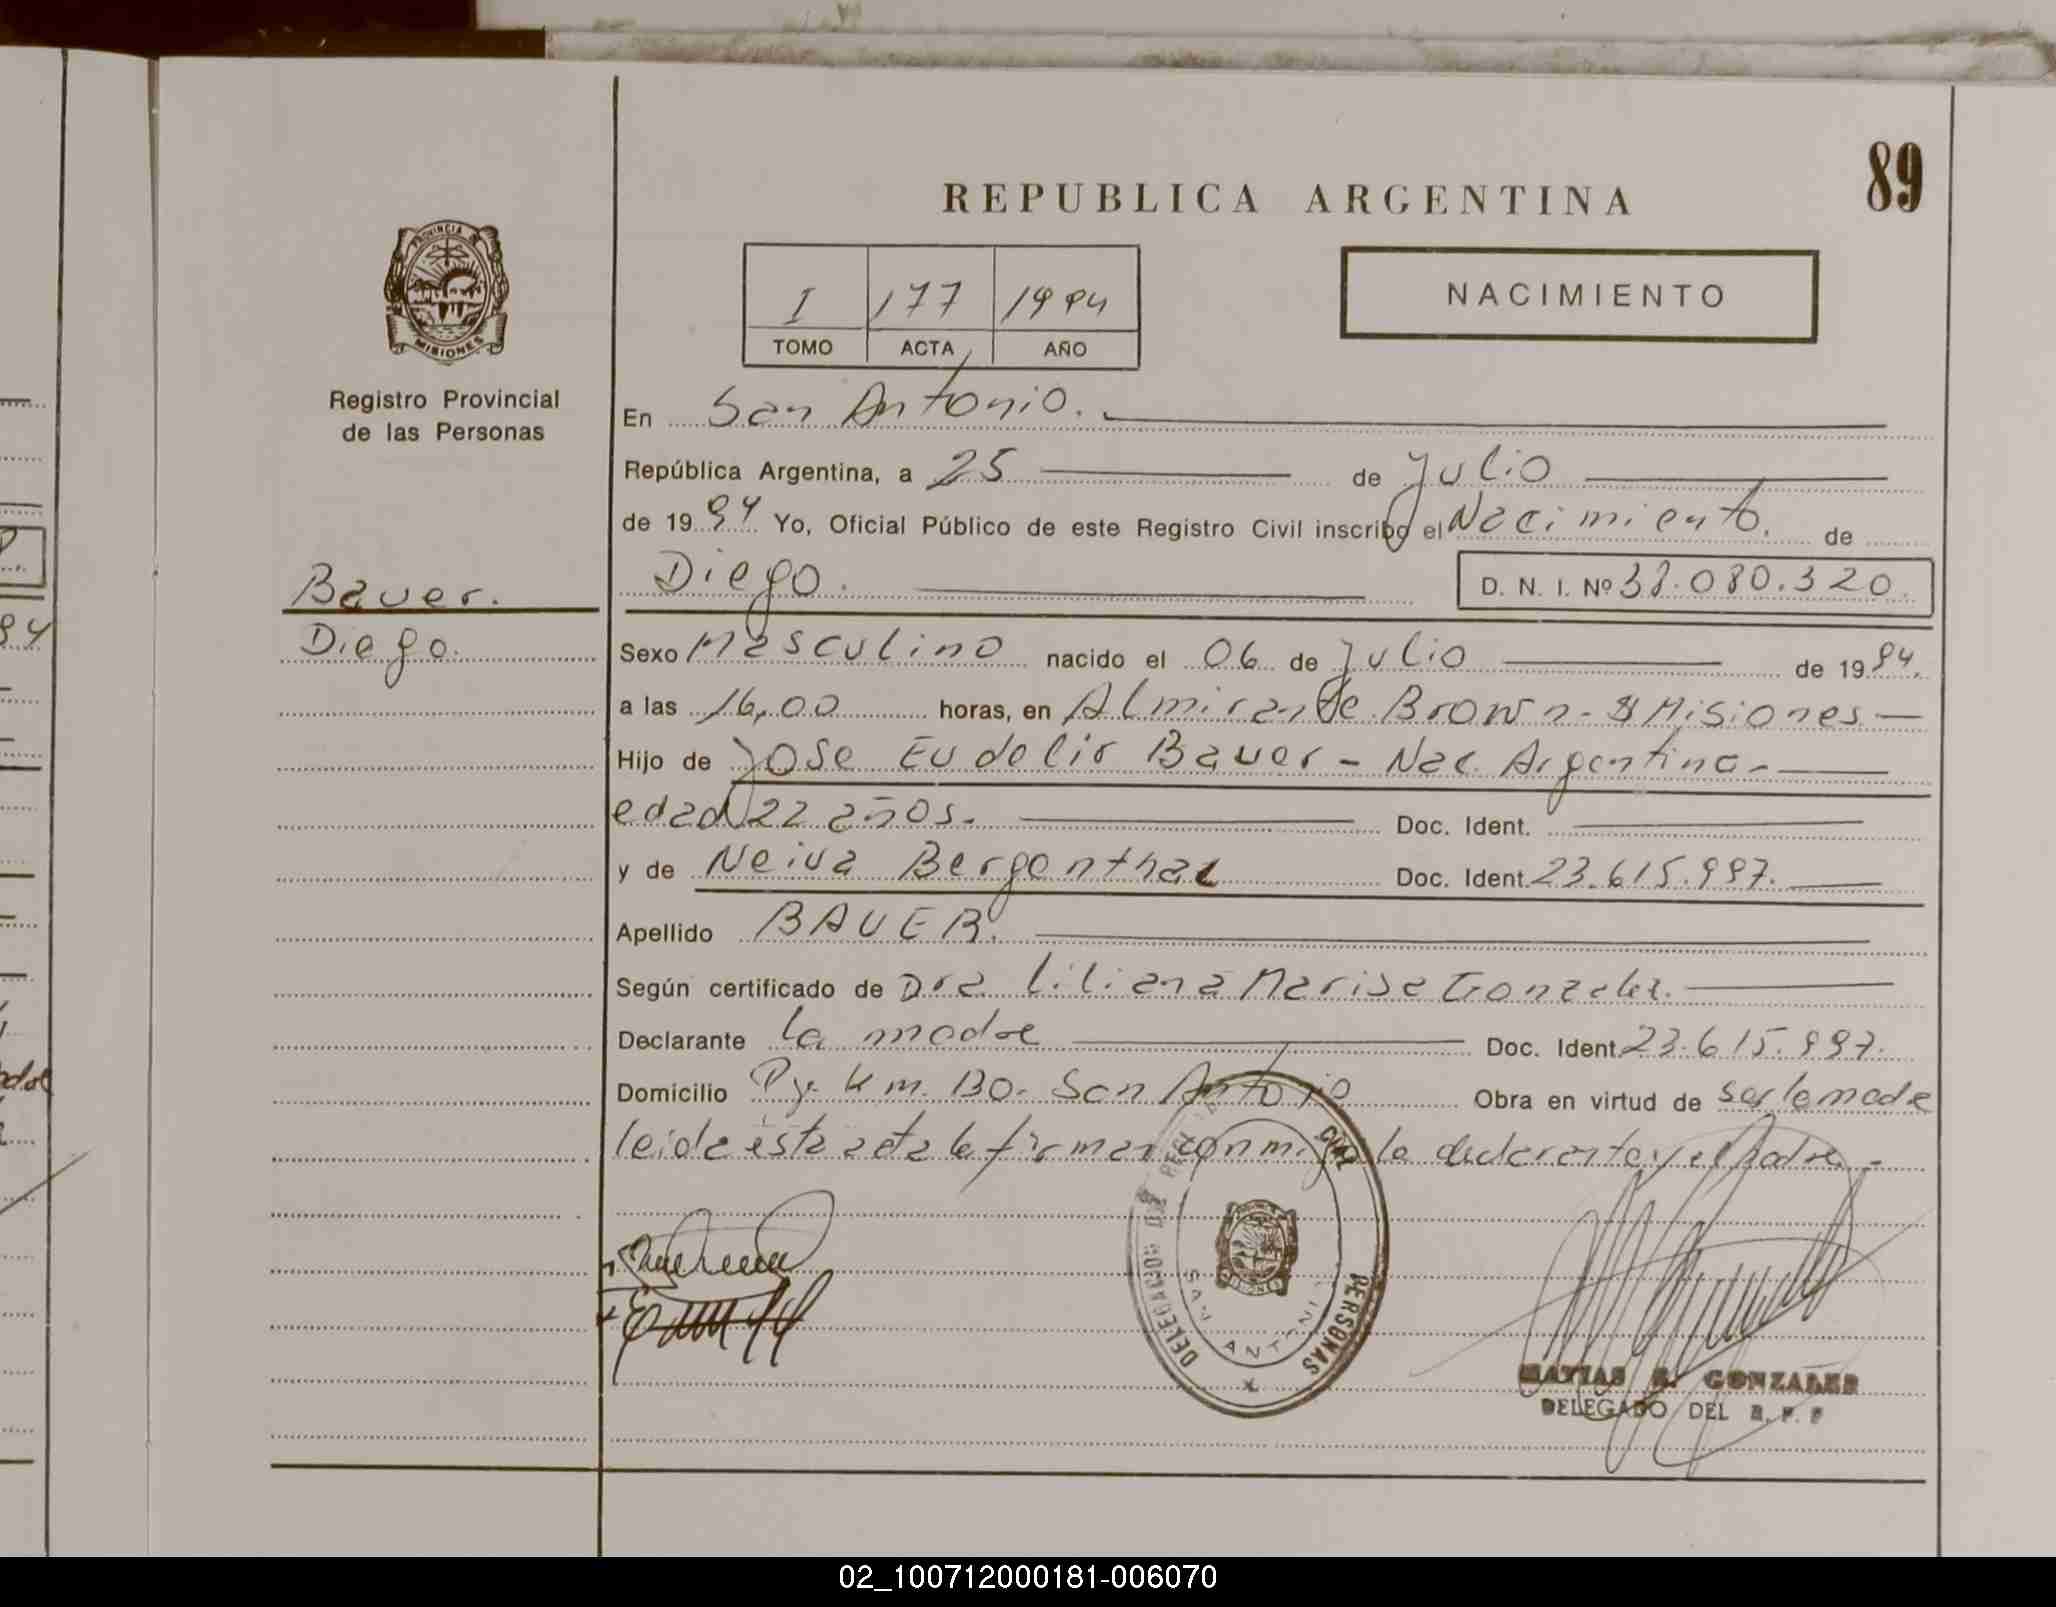 89
REPUBLICA ARGENTINA
PROVINCIA DE
MISIONES
NACIMIENTO
I 177 1994
TOMO ACTA AÑO
Registro Provincial
de las Personas
En San Antonio.
República Argentina, a 25 de Julio
de 1994 Yo, Oficial Público de este Registro Civil inscribo el Nacimiento. de
Bauer.
Diego. D. N. I. Nº 38.080.320.
Diego.
Sexo Masculino nacido el 06 de Julio de 1994.
a las 16,00 horas, en Almirante Brown - Misiones
Hijo de Jose Eudelir Bauer - Nac. Argentina -
edad 22 años. Doc. Ident.
y de Neiva Bergenthal Doc. Ident. 23.615.997.
Apellido BAUER.
Según certificado de Dra. Liliana Marisa Gonzalez.
Declarante la madre Doc. Ident. 23.615.997.
Domicilio Pje. Km. 130 - San Antonio Obra en virtud de ser la madre
leida ésta acta la firman conmigo la declarante y el Padre. -
DELEGADO DEL REG CIVIL PERSONAS
SAN ANTONI
MATIAS GONZALEZ
DELEGADO DEL R. P. P
02_100712000181-006070